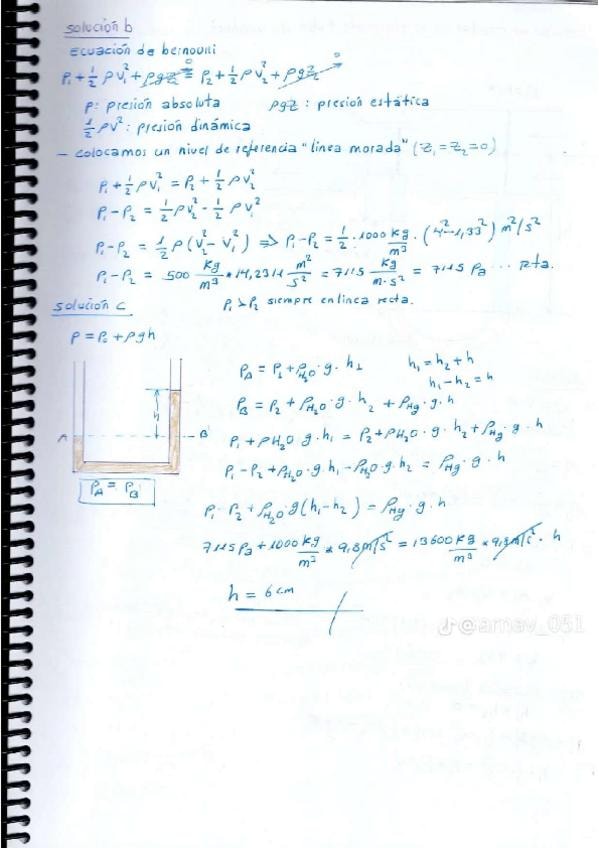 solución b
Ecuación de bernoulli
P₁ + ½ ρ V₁² + ρgz₁ = P₂ + ½ ρ V₂² + ρgz₂
0
0
P: presión absoluta ρgz: presión estática
½ ρV²: presión dinámica
- colocamos un nivel de referencia "linea morada" (z₁ = z₂ = 0)
P₁ + ½ ρ V₁² = P₂ + ½ ρ V₂²
P₁ - P₂ = ½ ρ V₂² - ½ ρ V₁²
P₁ - P₂ = ½ ρ (V₂² - V₁²) ⇒ P₁ - P₂ = ½ · 1000 kg/m³ · (4² - 1,33²) m²/s²
P₁ - P₂ = 500 kg/m³ * 14,2311 m²/s² = 7115 kg/m·s² = 7115 Pa ... rta.
solución c
P₁ > P₂ siempre en linea recta.
P = P₀ + ρgh
h
A
B
P_A = P_B
P_A = P₁ + ρ_H₂O · g · h₁ h₁ = h₂ + h
h₁ - h₂ = h
P_B = P₂ + ρ_H₂O · g · h₂ + ρ_Hg · g · h
P₁ + ρH₂O · g · h₁ = P₂ + ρH₂O · g · h₂ + ρ_Hg · g · h
P₁ - P₂ + ρ_H₂O · g · h₁ - ρ_H₂O · g · h₂ = ρ_Hg · g · h
P₁ - P₂ + ρ_H₂O · g (h₁ - h₂) = ρ_Hg · g · h
7115 Pa + 1000 kg/m³ * 9,8 m/s² = 13600 kg/m³ * 9,8 m/s² · h
h = 6 cm
@arnav_051